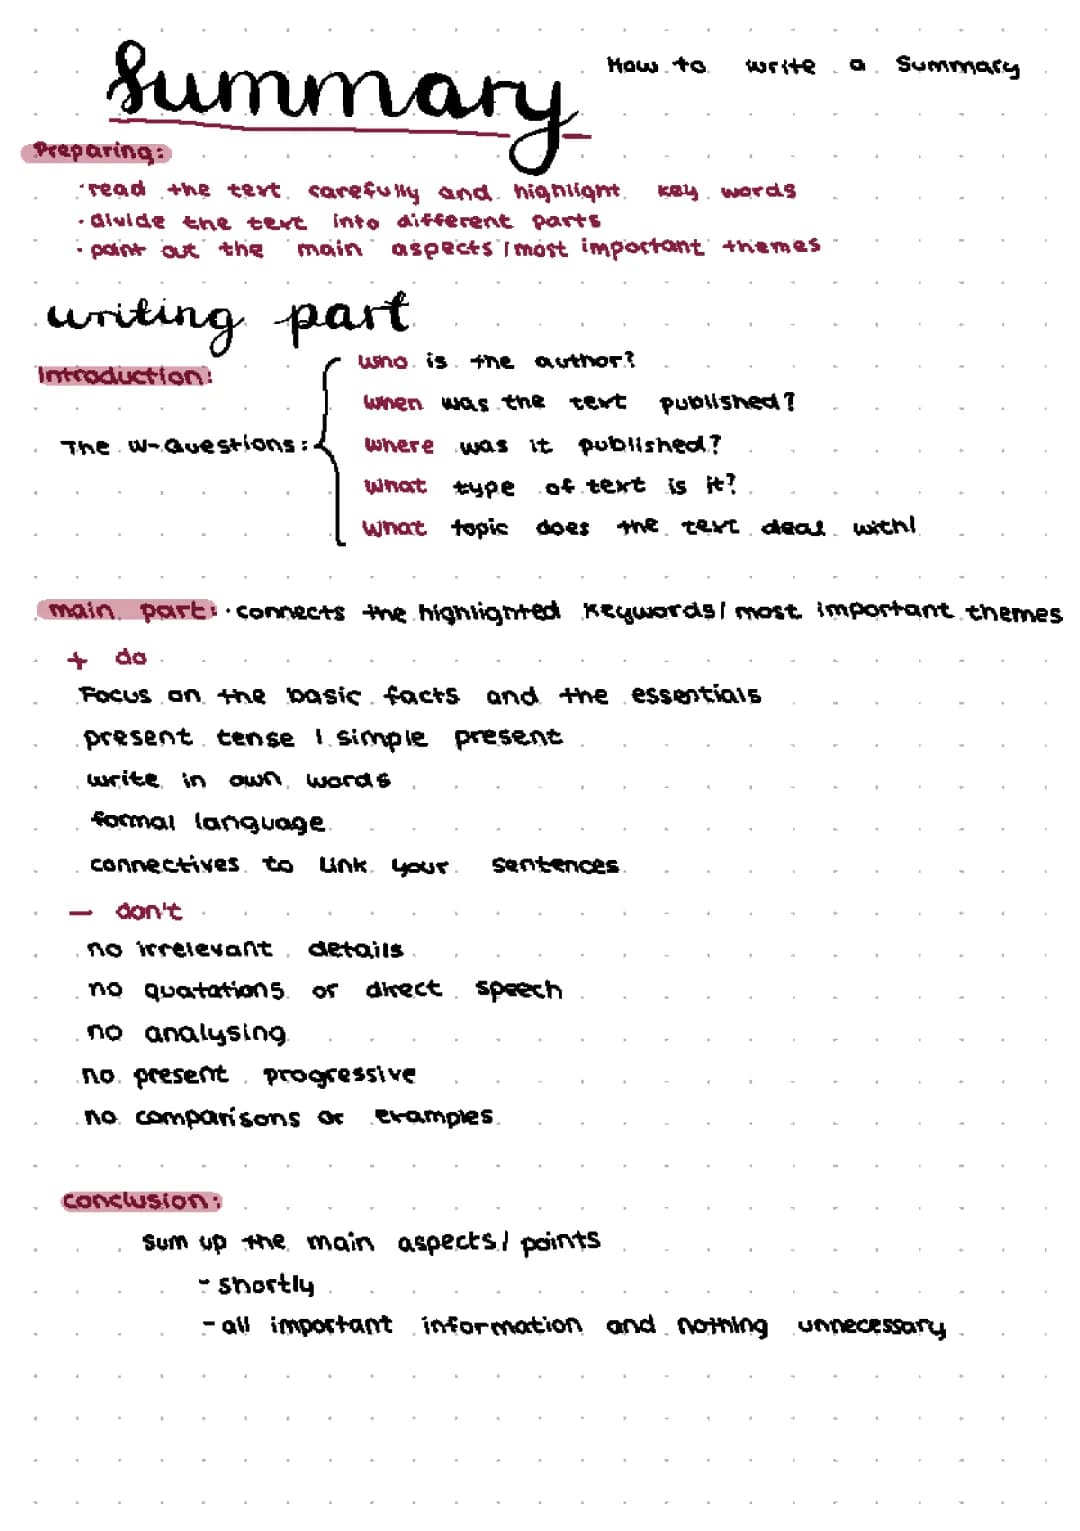 Summary
How to write a Summary
Preparing:
· read the text carefully and highlight key words
· divide the text into different parts
· point out the main aspects / most important themes
writing part
Introduction:
The W-Questions:
who is the author?
When was the text published?
where was it published?
What type of text is it?
What topic does the text deal with!
main part: · connects the highlighted keywords / most important themes
+ do
Focus on the basic facts and the essentials
present tense / simple present
write in own words
formal language
connectives to link your sentences
- don't
no irrelevant details
no quotations or direct speech
no analysing
no present progressive
no comparisons or examples
conclusion:
sum up the main aspects / points
- shortly
- all important information and nothing unnecessary